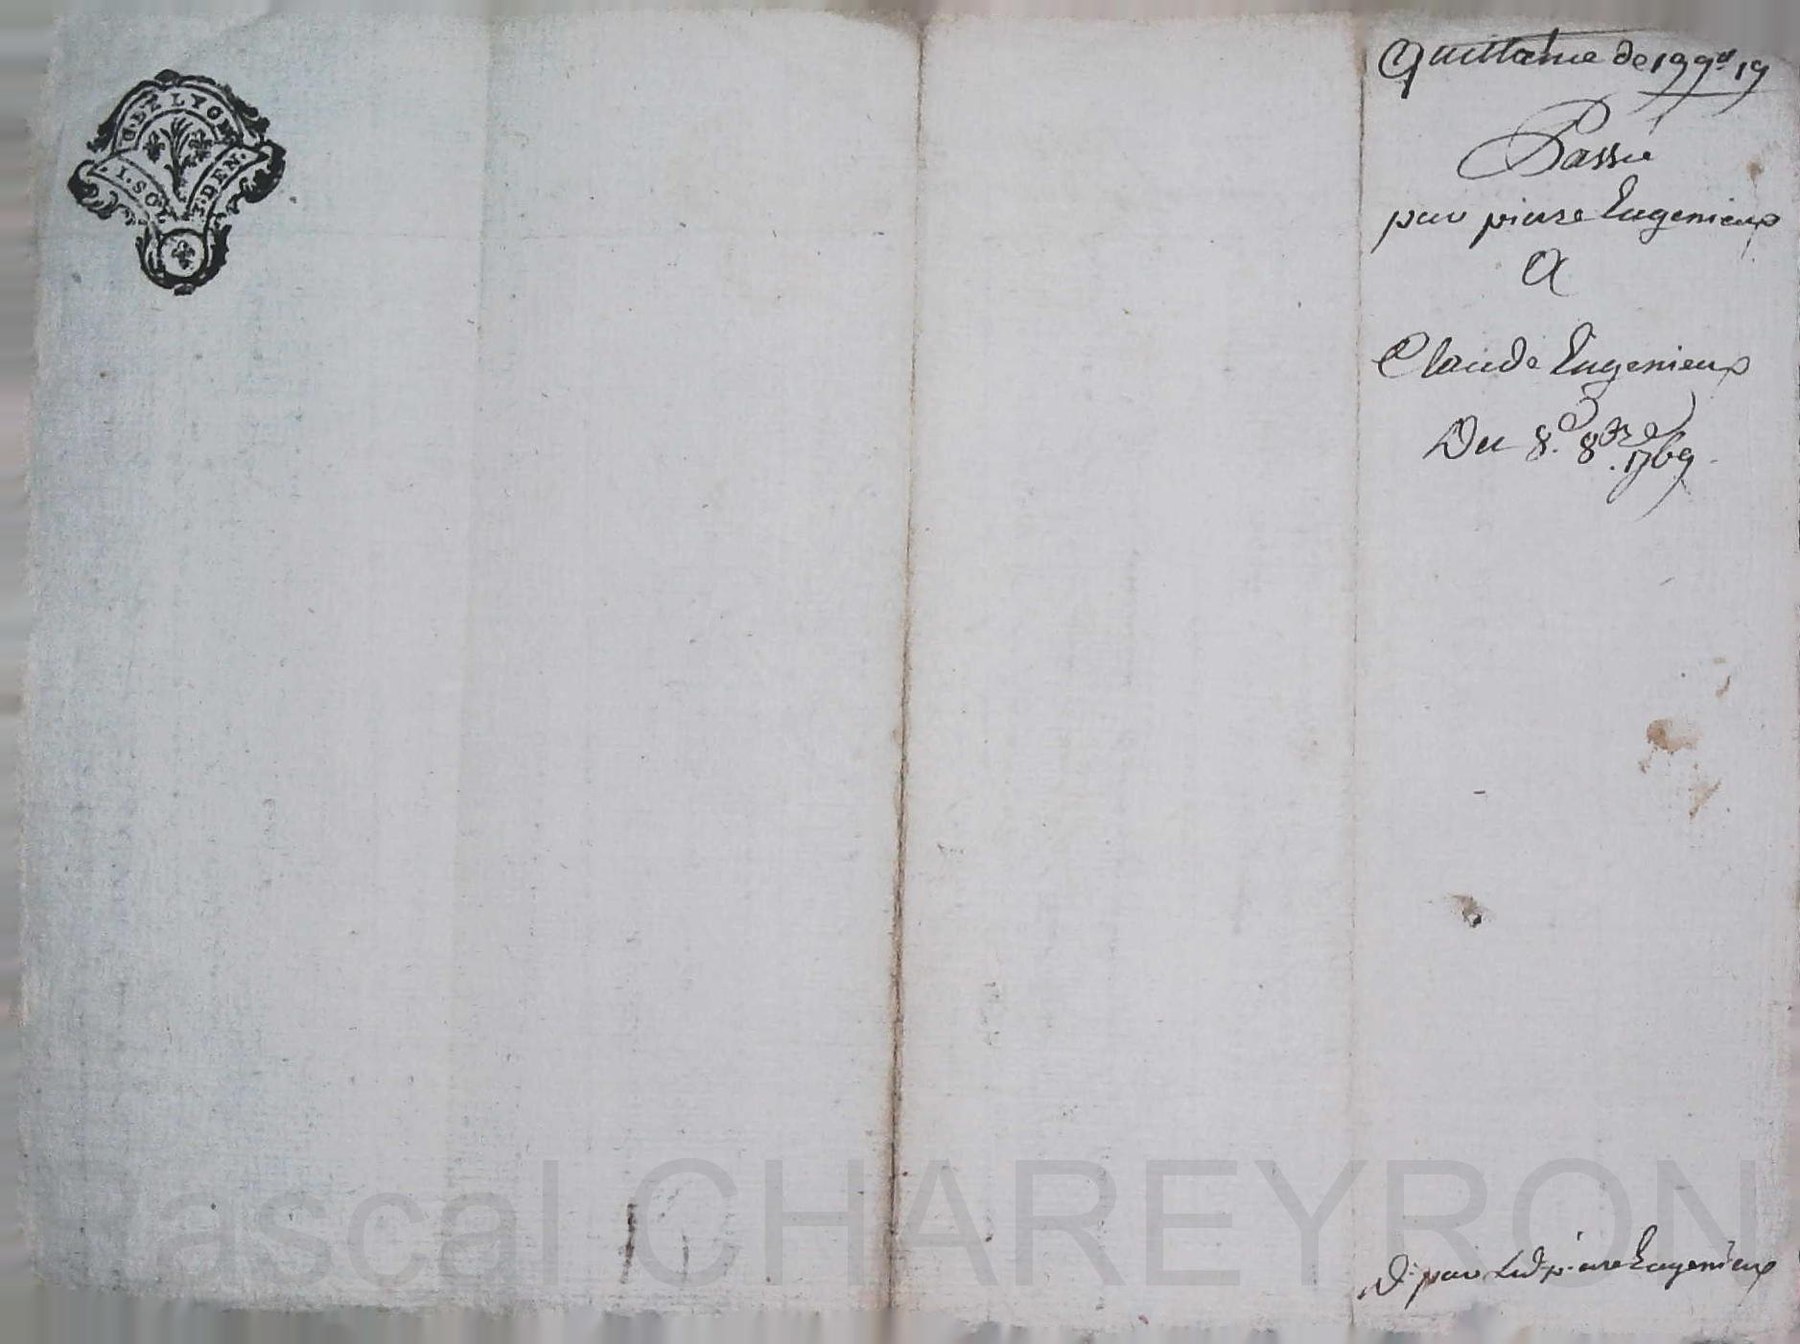 G. ET LYON
1. SOL 4. DEN.
Quittance de 199# 19
Passée
par pierre Eugenieux
A
Claude Eugenieux
Du 8e. 8bre. 1769
D: par Led: pierre Eugenieux
Pascal CHAREYRON